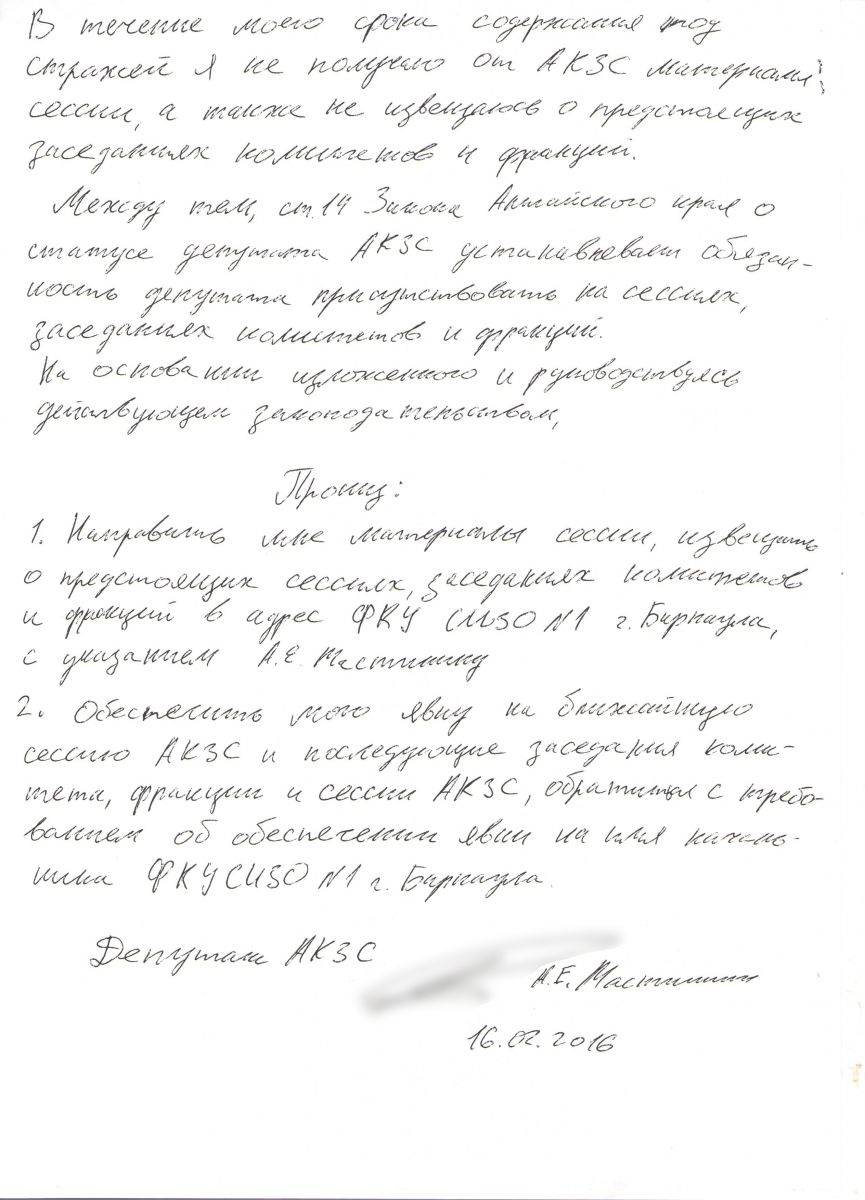 В течение моего срока содержания под
стражей я не получаю от АКЗС материалы
сессии, а также не извещаюсь о предстоящих
заседаниях комитетов и фракций.
Между тем, ст. 14 Закона Алтайского края о
статусе депутата АКЗС устанавливает обязан-
ность депутата присутствовать на сессиях,
заседаниях комитетов и фракций.
На основании изложенного и руководствуясь
действующем законодательством,
Прошу:
1. Направить мне материалы сессии, извещать
о предстоящих сессиях, заседаниях комитетов
и фракций в адрес ФКУ СИЗО №1 г. Барнаула,
с указанием А.Е. Мастинину
2. Обеспечить мою явку на ближайшую
сессию АКЗС и последующие заседания коми-
тета, фракции и сессии АКЗС, обратиться с требо-
ванием об обеспечении явки на имя началь-
ника ФКУ СИЗО №1 г. Барнаула.
Депутат АКЗС
А.Е. Мастинин
16.02.2016